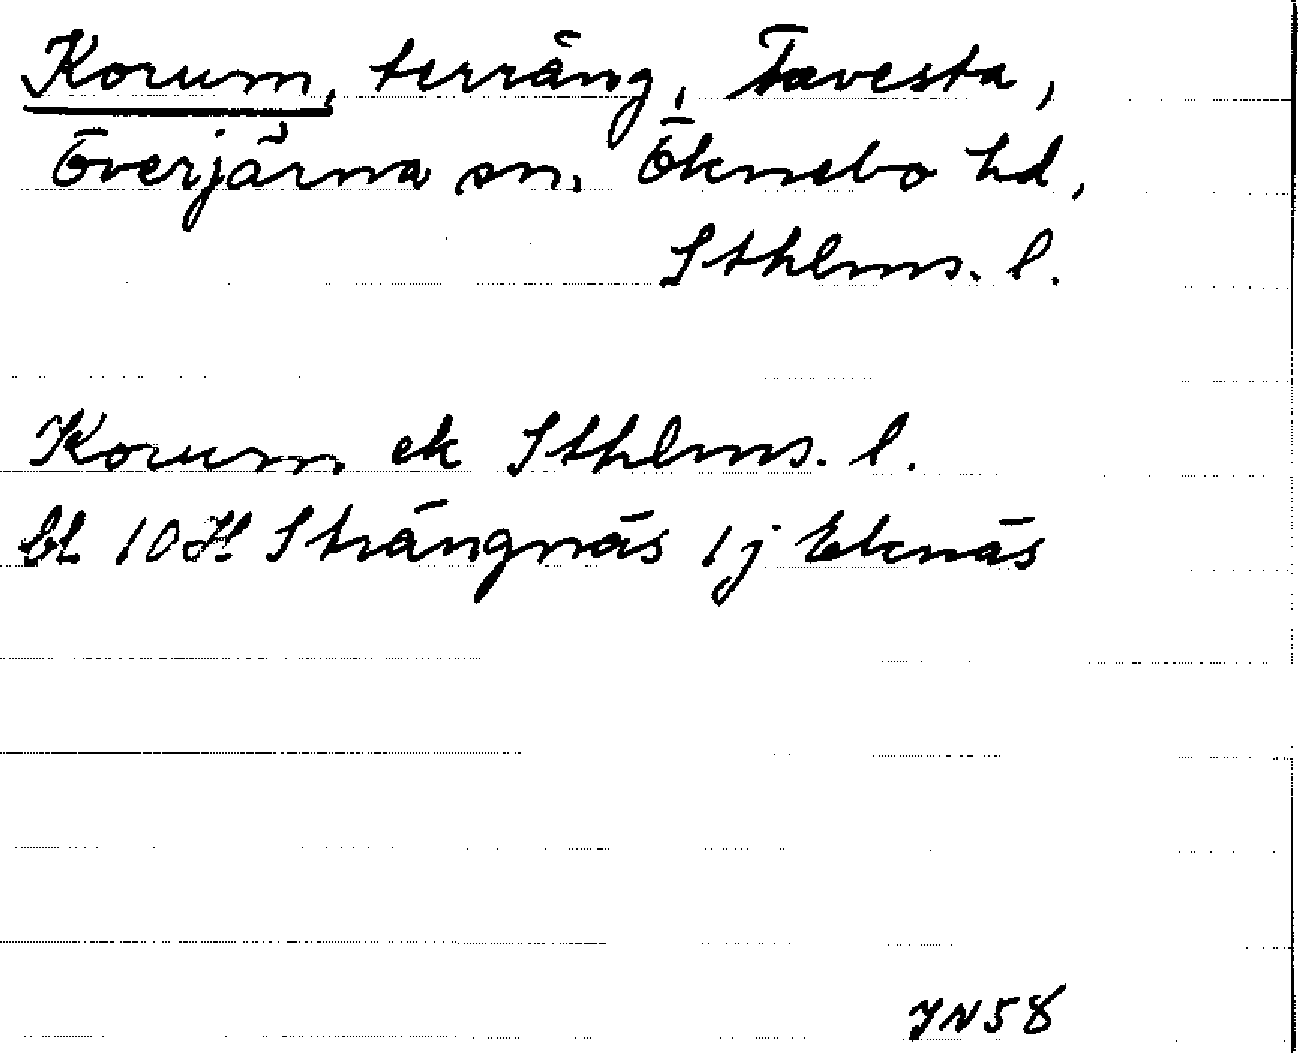 Korum, terräng, Tavesta,
Överjärna sn. Öknebo hd,
Sthlms. l.
Korum ek Sthlms. l.
bl 10H Strängnäs 1j Eknäs
JN58